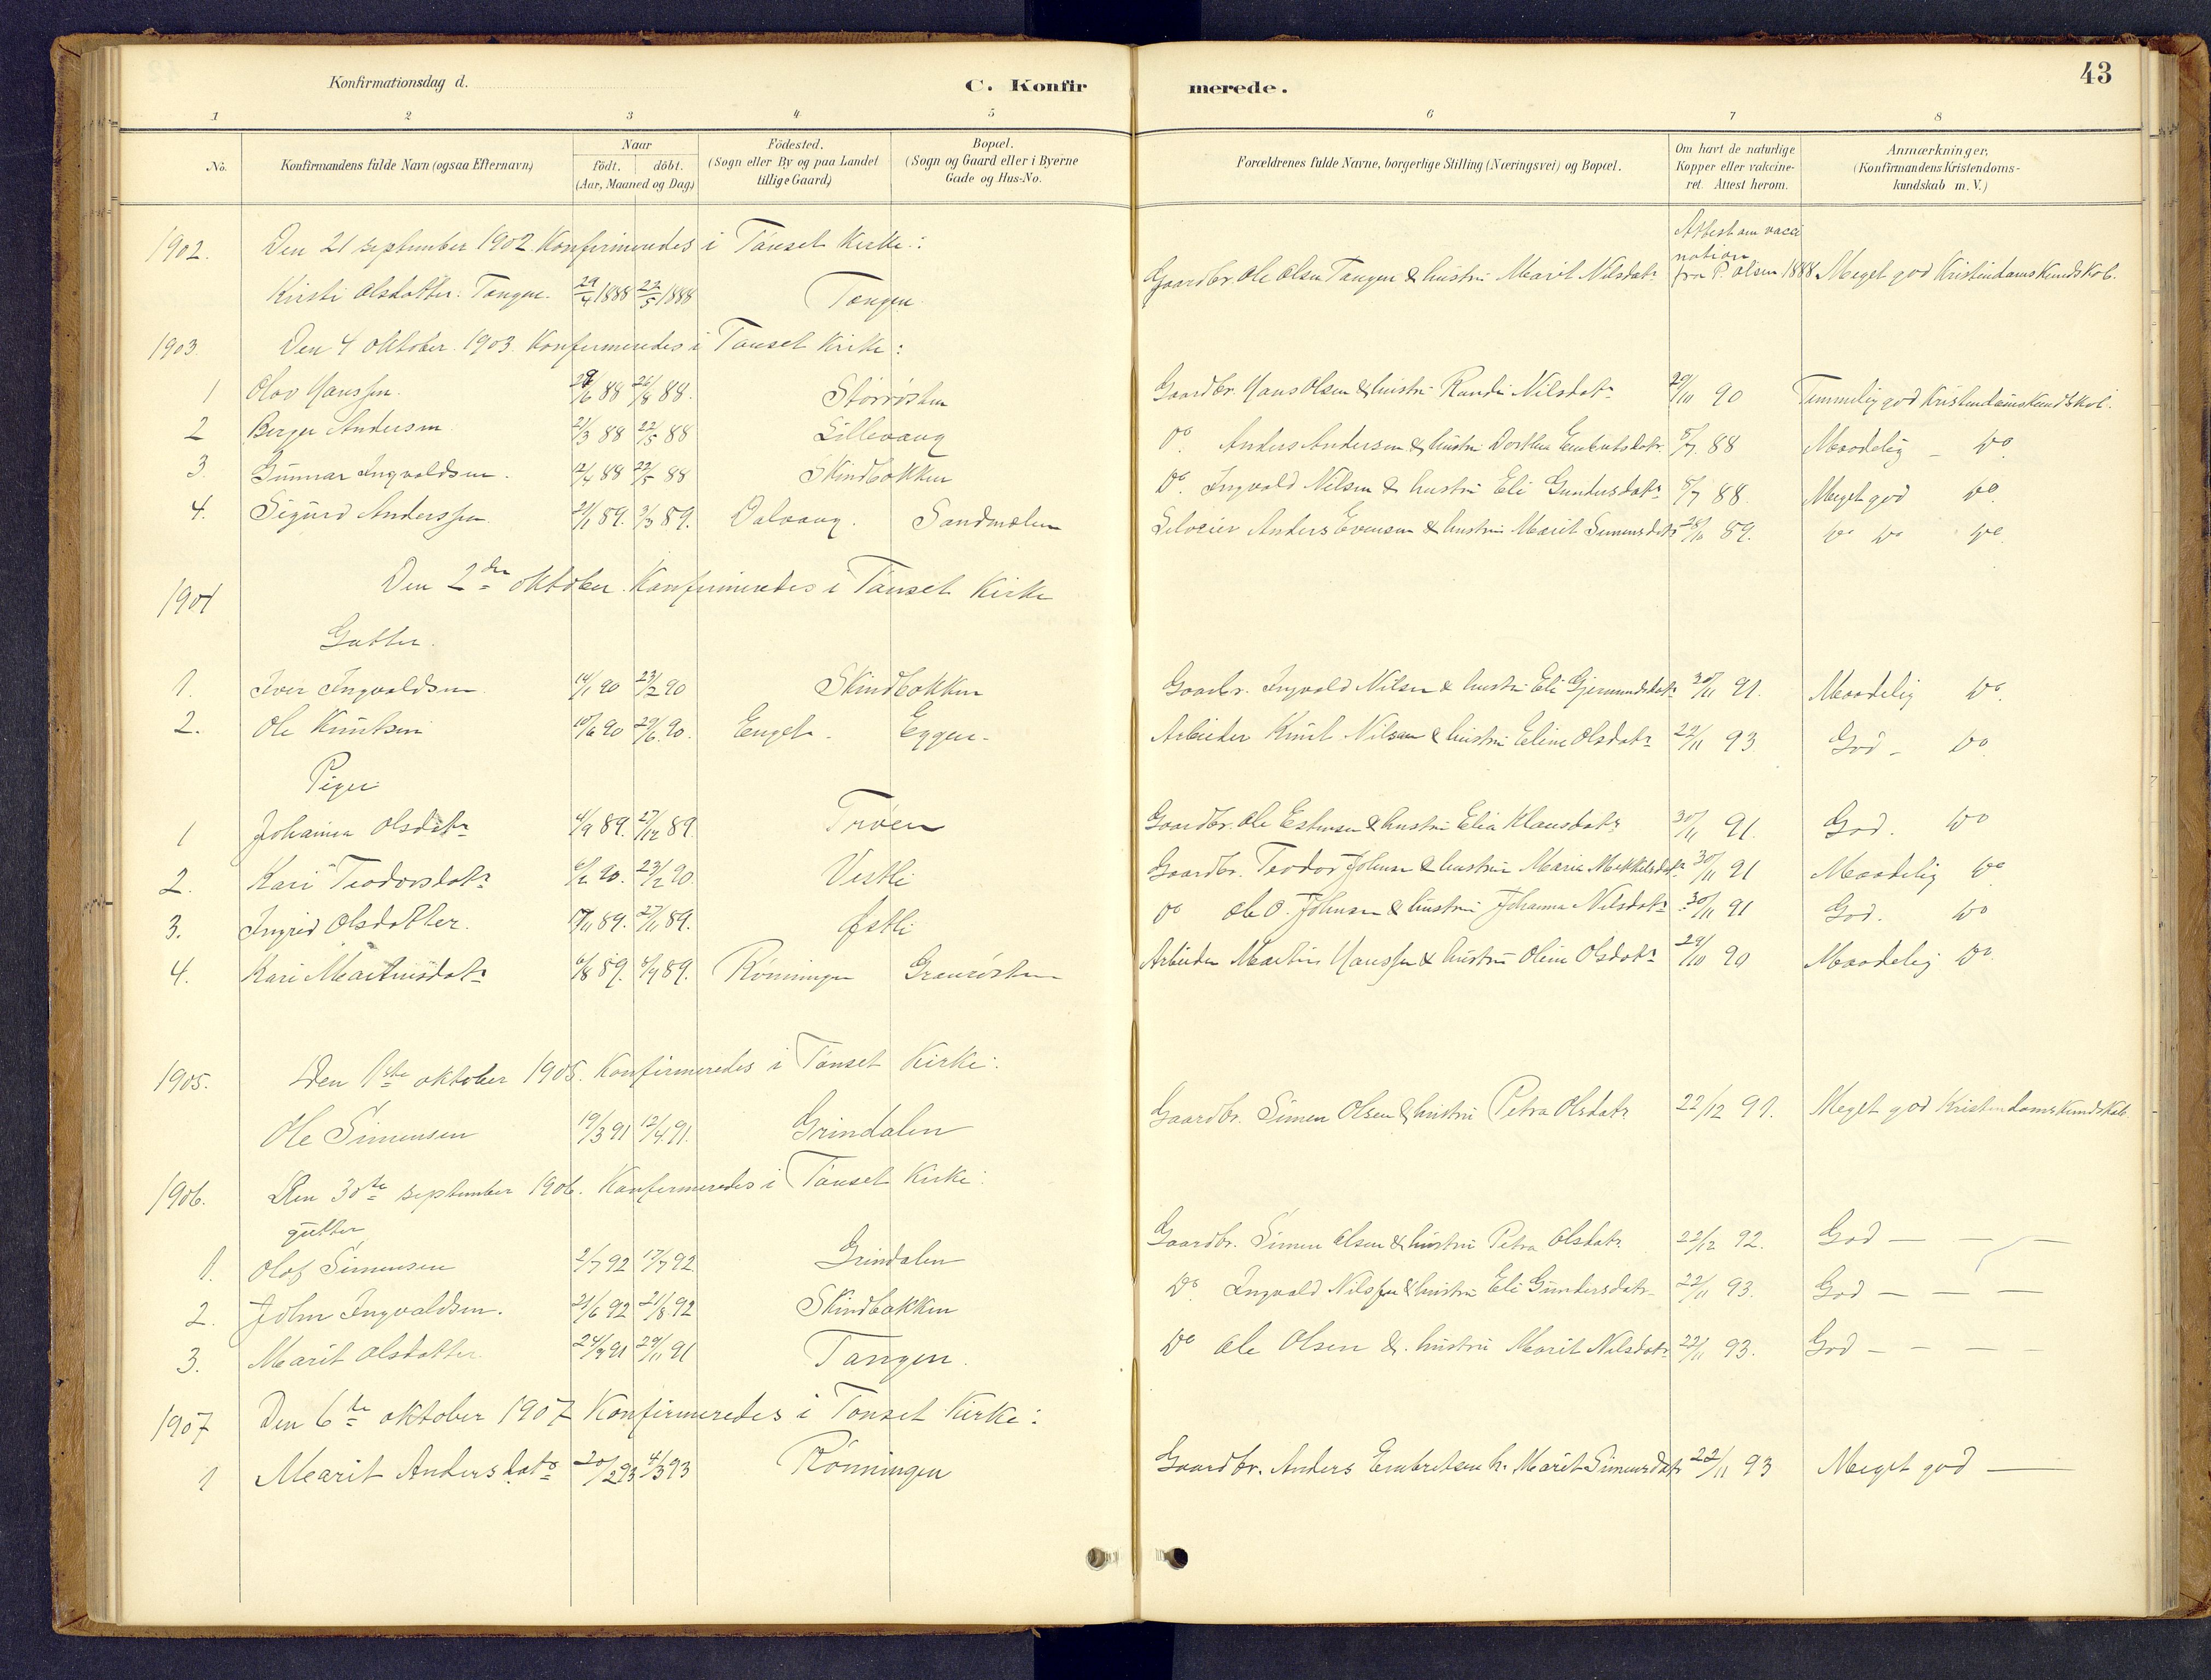 Konfirmationsdag d. C. Konfirmerede. 43
1 2 3 4 5 6 7 8
No. Konfirmandens fulde Navn (ogsaa Efternavn) Naar födt. döbt. (Aar, Maaned og Dag) Födested. (Sogn eller By og paa Landet tillige Gaard) Bopæl. (Sogn og Gaard eller i Byerne Gade og Hus-No. Forældrenes fulde Navne, borgerlige Stilling (Næringsvei) og Bopæl. Om havt de naturlige Kopper eller vakcineret. Attest herom. Anmærkninger, (Konfirmandens Kristendomskundskab m. V.)
1902. Den 21 september 1902 Konfirmeredes i Tønset Kirke: Attest om vaccination
Kirsti Olsdatter Tangen. 29/4 1888 22/5 1888 Tangen Gaardbr. Ole Olsen Tangen & hustru Marit Nilsdatr fra P. Olsen 1888 Meget god Kristendomskundskab.
1903. Den 4 oktober 1903 Konfirmeredes i Tønset Kirke:
1 Olav Hanssen. /6 88 26/8 88. Storrøsten Gaardbr. Hans Olsen & hustru Randi Nilsdatr 20/11 90 Temmelig god Kristendomskundskab.
2 Berger Andersen 21/3 88 22/5 88 Lillevang Do. Anders Andersen & hustru Dorthea Embretsdatr. 5/7 88 Maadelig - Do.
3. Gunnar Ingvaldsen. 12/4 88 22/5 88 Skindbakken Do. Ingvald Nilsen & hustru Eli Gundersdatr 5/7 88. Meget god Do.
4. Sigurd Anderssen 21/1 89. 3/3 89. Dalvang. Sandmælen Selveier Anders Evensen & hustru Marit Simensdatr 28/10 89. Do Do Do.
1904 Den 2den oktober Konfirmeredes i Tønset Kirke
Gutter.
1. Iver Ingvaldsen 14/1 90 23/2 90 Skindbakken Gaardbr. Ingvald Nilsen & hustru Eli Gjermundsdatr 30/11 91. Maadelig Do.
2. Ole Knutsen 10/6 90 29/6 90. Enget. Eggen. Arbeider Knut Nilsen & hustru Eline Olsdatr 22/11 93. God - Do
Piger
1 Johanna Olsdatr 4/9 89. 27/12 89. Trøen Gaardbr. Ole Estensen & hustru Elia Klausdatr 30/11 91. God. Do
2. Kari Teodorsdatr 6/2 90. 23/2 90. Vestli Gaardbr. Teodor Johnsen & hustru Maria Mikkelsdatr 30/11 91 Maadelig Do
3. Ingrid Olsdatter. /11 89. 27/11 89. Østli Do Ole O. Johnsen & hustru Johanna Nilsdatr 30/11 91 God. Do
4. Kari Martinsdatr 6/8 89. 8/9 89. Rønningen Granrøsten Arbeider Martin Hanssen & hustru Oline Olsdatr 29/10 90 Maadelig Do.
1905. Den 1ste oktober 1905. Konfirmeredes i Tønset Kirke:
Ole Simensen 19/3 91 12/4 91. Grindalen Gaardbr. Simen Olsen & hustru Petra Olsdatr 22/12 91. Meget god Kristendomskundskab.
1906. Den 30te september 1906. Konfirmeredes i Tønset Kirke:
gutter
1. Olof Simensen 2/7 92 17/7 92. Grindalen Gaardbr. Simen Olsen & hustru Petra Olsdatr 22/12 92. God — — —
2. John Ingvaldsen. 21/6 92 21/8 92 Skindbakken Do. Ingvald Nilssen & hustru Eli Gundersdatr. 22/11 93. God — — —
3. Marit Olsdatter 24/9 91 29/11 91 Tangen. Do Ole Olsen & hustru Marit Nilsdatr 22/11 93. God — — — —
1907 Den 6te oktober 1907 Konfirmeredes i Tønset Kirke:
1 Marit Andersdatr 20/2 93 4/3 93 Rønningen Gaardbr. Anders Embretsen h. Marit Simensdatr 22/11 93 Meget god —